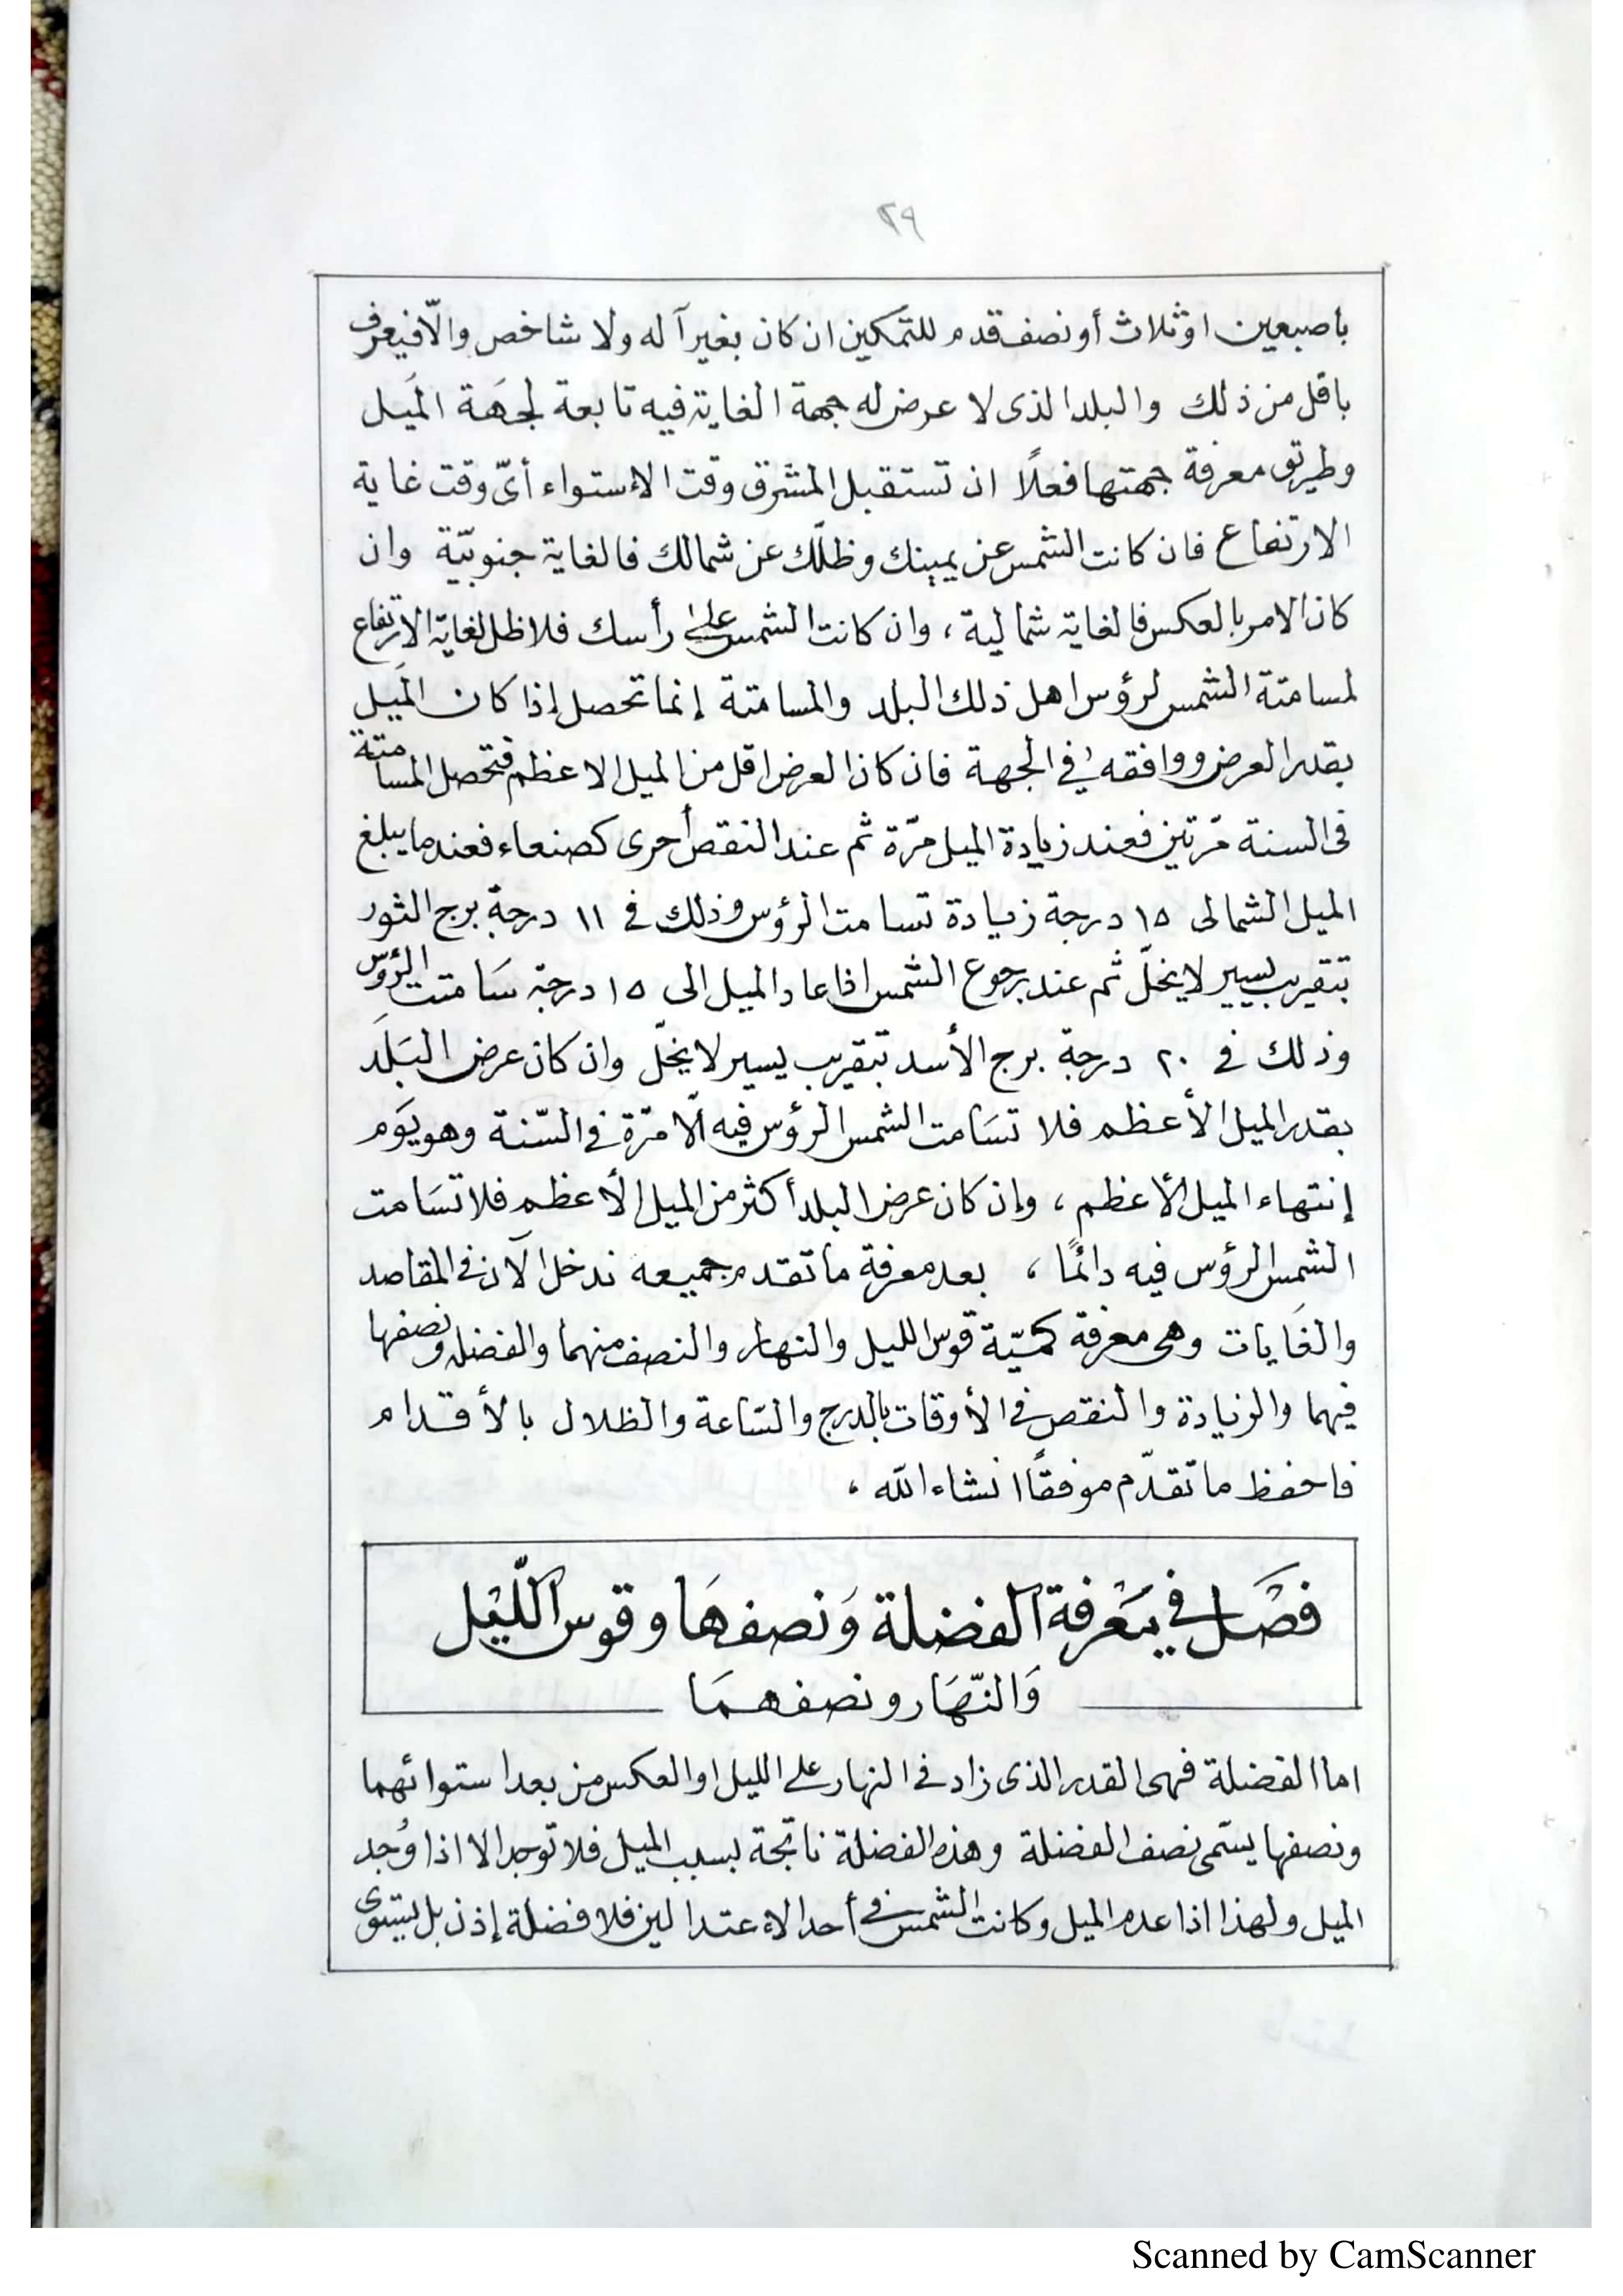 ٢٩
باصبعين او ثلاث أو نصف قدم للتمكين ان كان بغير آله ولا شاخص والّا فيعرف
باقل من ذلك والبلد الذى لا عرض له جهة الغاية فيه تابعة لجهَة الميَل
وطريق معرفة جهتها فعلًا ان تستقبل المشرق وقت الاستواء أىّ وقت غاية
الارتفاع فان كانت الشمس عن يمينك وظلّك عن شمالك فالغاية جنوبيّة وان
كان الامر بالعكس فالغاية شمالية ، وان كانت الشمس على رأسك فلا ظل لغاية الارتفاع
لمسامتة الشمس لرؤس اهل ذلك البلد والمسامتة إنما تحصل إذا كان الميَل
بقدر العرض ووافقه في الجهة فان كان العرض اقل من الميل الاعظم فتحصل المسامتة
فى السنة مرّتين فعند زيادة الميل مرّة ثم عند النقص أخرى كصنعاء فعند ما يبلغ
الميل الشمالى ١٥ درجة زيادة تسامت الرؤس وذلك في ١١ درجة برج الثور
بتقريب يسير لا يخلّ ثم عند رجوع الشمس اذا عاد الميل الى ١٥ درجة سَامتت الرؤس
وذلك في ٢٠ درجة برج الأسد بتقريب يسير لا يخلّ وان كان عرض البَلَد
بقدر الميل الأعظم فلا تسَامت الشمس الرؤس فيه الّا مرّة في السّنة وهو يوَم
إنتهاء الميل الأعظم ، وإن كان عرض البلد أكثر من الميل الأعظم فلا تسَامت
الشمس الرؤس فيه دائمًا ، بعد معرفة ما تقدم جميعه ندخل الآن في المقاصد
والغَايات وهى معرفة كميّة قوس الليل والنهار والنصف منهما والفضله ونصفها
فيهما والزيادة والنقص في الأوقات بالدرج والسّاعة والظلال بالأقدام
فاحفظ ما تقدّم موفقًا انشاء الله ،
فصَل في معَرفة الفضلة وَنصفهَا وقوس اللّيَل
وَالنّهَار ونصفهمَا
اما الفضلة فهى القدر الذى زاد في النهار على الليل او العكس من بعد استوائهما
ونصفها يسّمى نصف الفضلة وهذه الفضلة ناتجة بسبب الميل فلا توجد الا اذا وُجد
الميل ولهذا اذا عدم الميل وكانت الشمس في أحد الاعتدالين فلا فضلة إذن بل يستوى
Scanned by CamScanner